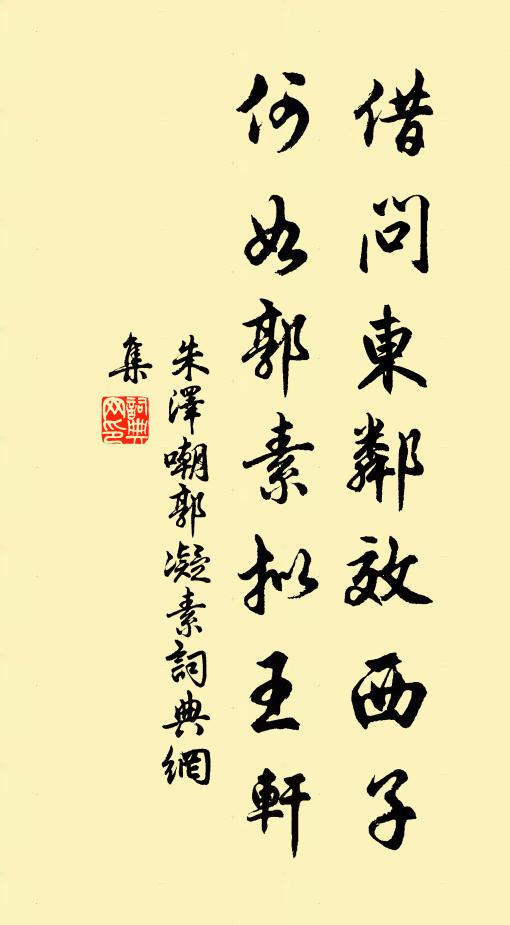 借問東鄰效西子
何如郭素拟王軒
朱澤嘲郭凝素詞典網
集
詞典
网印